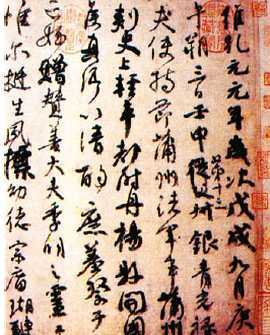 維乾元元年歲次戊戌九月庚
午朔三日壬申第十三叔銀青光祿
夫使持節蒲州諸軍事蒲州
刺史上輕車都尉丹楊縣開國
侯真卿以清酌庶羞祭于
亡姪贈贊善大夫季明之靈
惟爾挺生夙標幼德宗廟瑚璉